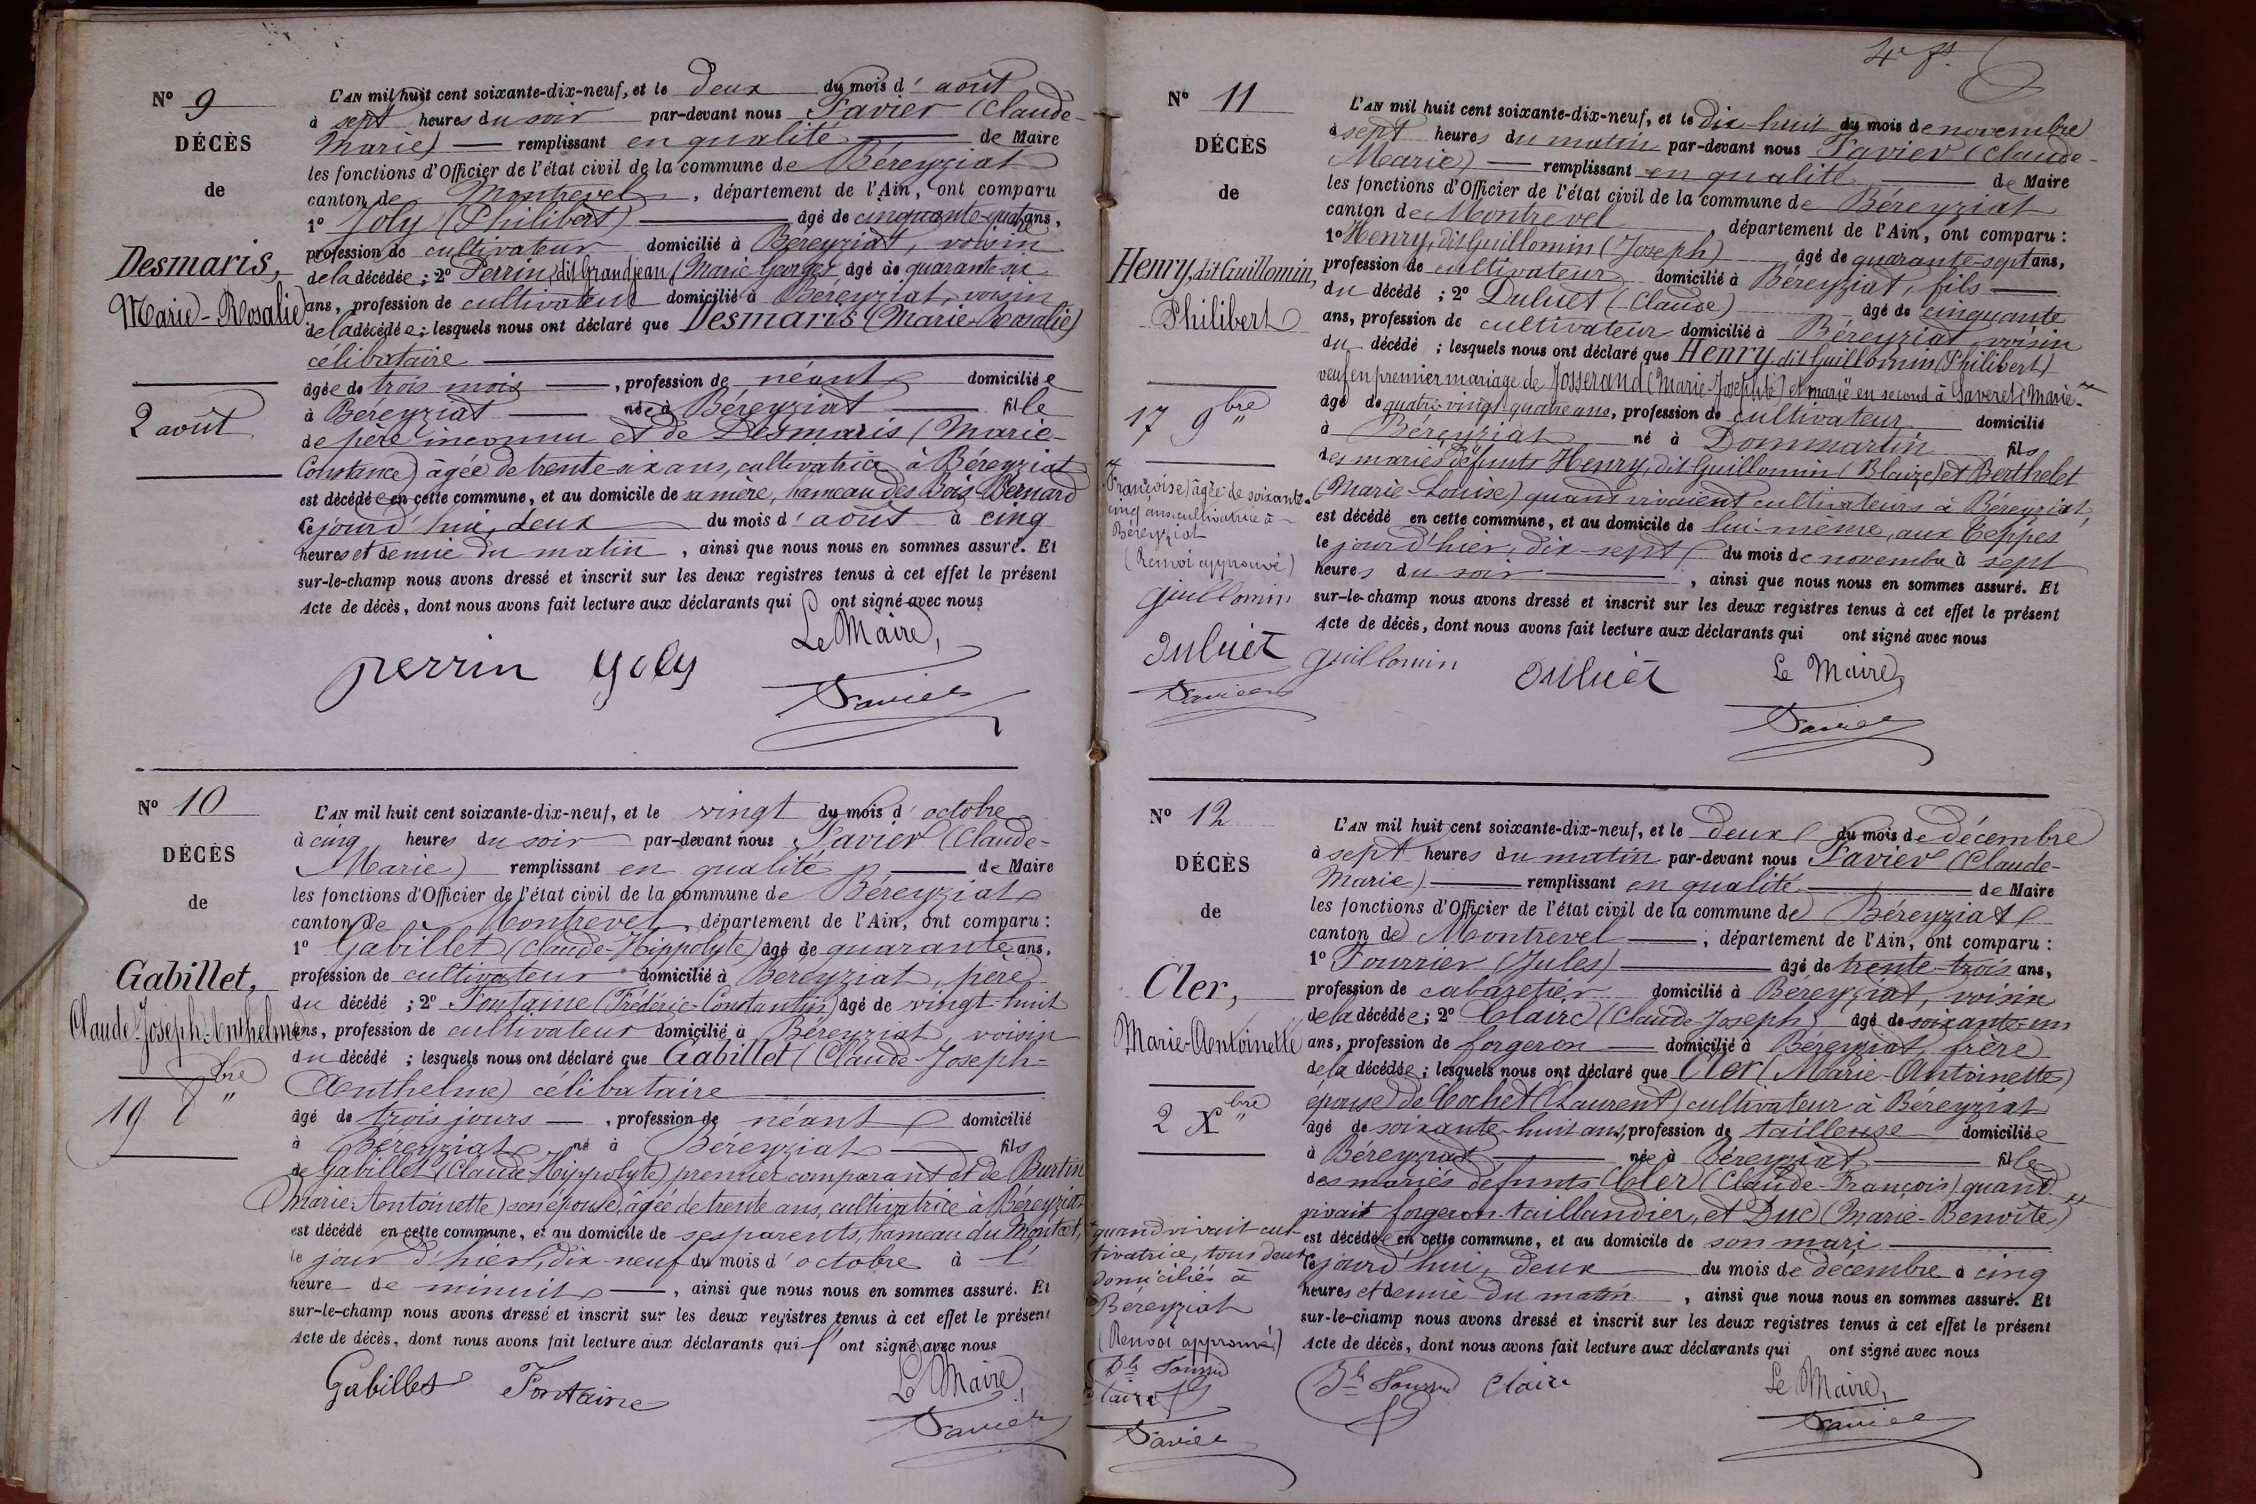 N° 9
DÉCÈS
de
Desmaris,
Marie-Rosalie
2 août
L'AN mil huit cent soixante-dix-neuf, et le deux du mois d'août
à sept heures du soir par-devant nous Favier (Claude-
Marie) remplissant en qualité de Maire
les fonctions d'Officier de l'état civil de la commune de Béreyziat
canton de Montrevel, département de l'Ain, ont comparu
1° Joly (Philibert) âgé de cinquante-quatre ans,
profession de cultivateur domicilié à Béreyziat, voisin
de la décédée; 2° Perrin, dit Grandjean (Marie-Georges) âgé de quarante-six
ans, profession de cultivateur domicilié à Béreyziat, voisin
de la décédée; lesquels nous ont déclaré que Desmaris (Marie-Rosalie)
célibataire
âgée de trois mois, profession de néant domiciliée
à Béreyziat née à Béreyziat fille
de père inconnu et de Desmaris (Marie-
Constance) âgée de trente-six ans, cultivatrice à Béreyziat
est décédée en cette commune, et au domicile de sa mère, hameau des Bois Bernard
ce jourd'hui, deux du mois d'août à cinq
heures et demie du matin, ainsi que nous nous en sommes assuré. Et
sur-le-champ nous avons dressé et inscrit sur les deux registres tenus à cet effet le présent
Acte de décès, dont nous avons fait lecture aux déclarants qui ont signé avec nous
Le Maire,
perrin Joly
Favier
N° 10
DÉCÈS
de
Gabillet,
Claude-Joseph-Anthelme
19 8bre
L'AN mil huit cent soixante-dix-neuf, et le vingt du mois d'octobre
à cinq heures du soir par-devant nous Favier (Claude-
Marie) remplissant en qualité de Maire
les fonctions d'Officier de l'état civil de la commune de Béreyziat
canton de Montrevel, département de l'Ain, ont comparu:
1° Gabillet (Claude-Hippolyte) âgé de quarante ans,
profession de cultivateur domicilié à Béreyziat, père
du décédé; 2° Fontaine (Frédéric-Constantin) âgé de vingt-huit
ans, profession de cultivateur domicilié à Béreyziat, voisin
du décédé; lesquels nous ont déclaré que Gabillet (Claude-Joseph-
Anthelme) célibataire
âgé de trois jours, profession de néant domicilié
à Béreyziat né à Béreyziat fils
de Gabillet (Claude Hippolyte) premier comparant et de Burtin
(Marie-Antoinette) son épouse, âgée de trente ans, cultivatrice à Béreyziat
est décédé en cette commune, et au domicile de ses parents, hameau du Montcet,
le jour d'hier, dix-neuf du mois d'octobre à l'
heure de minuit, ainsi que nous nous en sommes assuré. Et
sur-le-champ nous avons dressé et inscrit sur les deux registres tenus à cet effet le présent
Acte de décès, dont nous avons fait lecture aux déclarants qui l'ont signé avec nous
Gabillet Fontaine Le Maire,
Favier
4e ft
N° 11
DÉCÈS
de
Henry, dit Guillomin,
Philibert
17 9bre
Françoise) âgée de soixante-
cinq ans, cultivatrice à
Béreyziat
(Renvoi approuvé)
guillomin
Duluet
Favier
L'AN mil huit cent soixante-dix-neuf, et le dix-huit du mois de novembre
à sept heures du matin par-devant nous Favier (Claude-
Marie) remplissant en qualité de Maire
les fonctions d'Officier de l'état civil de la commune de Béreyziat
canton de Montrevel département de l'Ain, ont comparu:
1° Henry, dit Guillomin (Joseph) âgé de quarante-sept ans,
profession de cultivateur domicilié à Béreyziat, fils
du décédé; 2° Duluet (Claude) âgé de cinquante
ans, profession de cultivateur domicilié à Béreyziat, voisin
du décédé; lesquels nous ont déclaré que Henry, dit Guillomin (Philibert)
veuf en premier mariage de Josserand (Marie-Josephte) et marié en second à Saveret (Marie-
âgé de quatre-vingt-quatre ans, profession de cultivateur domicilié
à Béreyziat né à Dommartin fils
des mariés défunts Henry, dit Guillomin (Blaize) et Berthelet
(Marie-Louise) quand vivaient cultivateurs à Béreyziat,
est décédé en cette commune, et au domicile de lui-même, aux Teppes
le jour d'hier, dix-sept du mois de novembre à sept
heures du soir, ainsi que nous nous en sommes assuré. Et
sur-le-champ nous avons dressé et inscrit sur les deux registres tenus à cet effet le présent
Acte de décès, dont nous avons fait lecture aux déclarants qui ont signé avec nous
guillomin Duluet Le Maire,
Favier
N° 12
DÉCÈS
de
Cler,
Marie-Antoinette
2 Xbre
quand vivait cul-
tivatrice, tous deux
domiciliés à
Béreyziat
(Renvoi approuvé)
Claire
Favier
L'AN mil huit cent soixante-dix-neuf, et le deux du mois de décembre
à sept heures du matin par-devant nous Favier (Claude-
Marie) remplissant en qualité de Maire
les fonctions d'Officier de l'état civil de la commune de Béreyziat
canton de Montrevel, département de l'Ain, ont comparu:
1° Fourrier (Jules) âgé de trente-trois ans,
profession de cabaretier domicilié à Béreyziat, voisin
de la décédée; 2° Claire (Claude-Joseph) âgé de soixante-un
ans, profession de forgeron domicilié à Béreyziat, frère
de la décédée; lesquels nous ont déclaré que Cler (Marie-Antoinette)
épouse de Cochet (Laurent) cultivateur à Béreyziat
âgé de soixante-huit ans, profession de tailleuse domiciliée
à Béreyziat née à Béreyziat fille
des mariés défunts Cler (Claude-François) quand
vivait forgeron-taillandier, et Duc (Marie-Benoîte)
est décédée en cette commune, et au domicile de son mari
ce jourd'hui, deux du mois de décembre à cinq
heures et demie du matin, ainsi que nous nous en sommes assuré. Et
sur-le-champ nous avons dressé et inscrit sur les deux registres tenus à cet effet le présent
Acte de décès, dont nous avons fait lecture aux déclarants qui ont signé avec nous
Claire Le Maire,
Favier